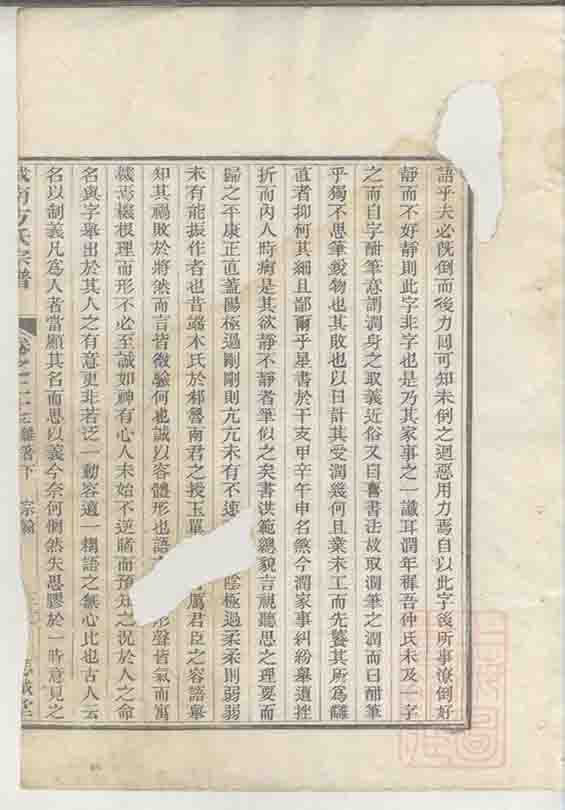 語乎夫必旣倒而後力回可知未倒之迴惡用力焉自以此字後所事潦倒好
靜而不好靜則此字非字也是乃其家事之一讖耳潤年稺吾仲氏未及一字
之而自字酣筆意謂潤身之取義近俗又自喜書法故取潤筆之潤而曰酣筆
乎獨不思筆銳物也其敗也以日計其受潤幾何且業未工而先饕其所爲
直者抑何其細且鄙爾乎星書於干支甲辛午申名煞今潤家事糾紛舉遭挫
折而內人時病是其欲靜不靜者筆似之矣書洪範總貌言視聽思之理要而
歸之平康正直蓋陽極過剛剛則亢亢未有不速 陰極過柔柔則弱弱
未有能振作者也昔 木氏於邾魯南君之授玉 厲君臣之容語舉
知其禍敗於將然而言皆微驗何也誠以容體形也語 形聲皆氣而寓
機焉機根理而形不必至誠如神有心人未始不逆睹而預知之況於人之命
名與字舉出於其人之有意更非若泛一動容適一搆語之無心比也古人云
名以制義凡爲人者當顧其名而思以義今奈何惘然失思膠於一時意見之
方氏宗譜 卷之二十三 雜著下 宗翰